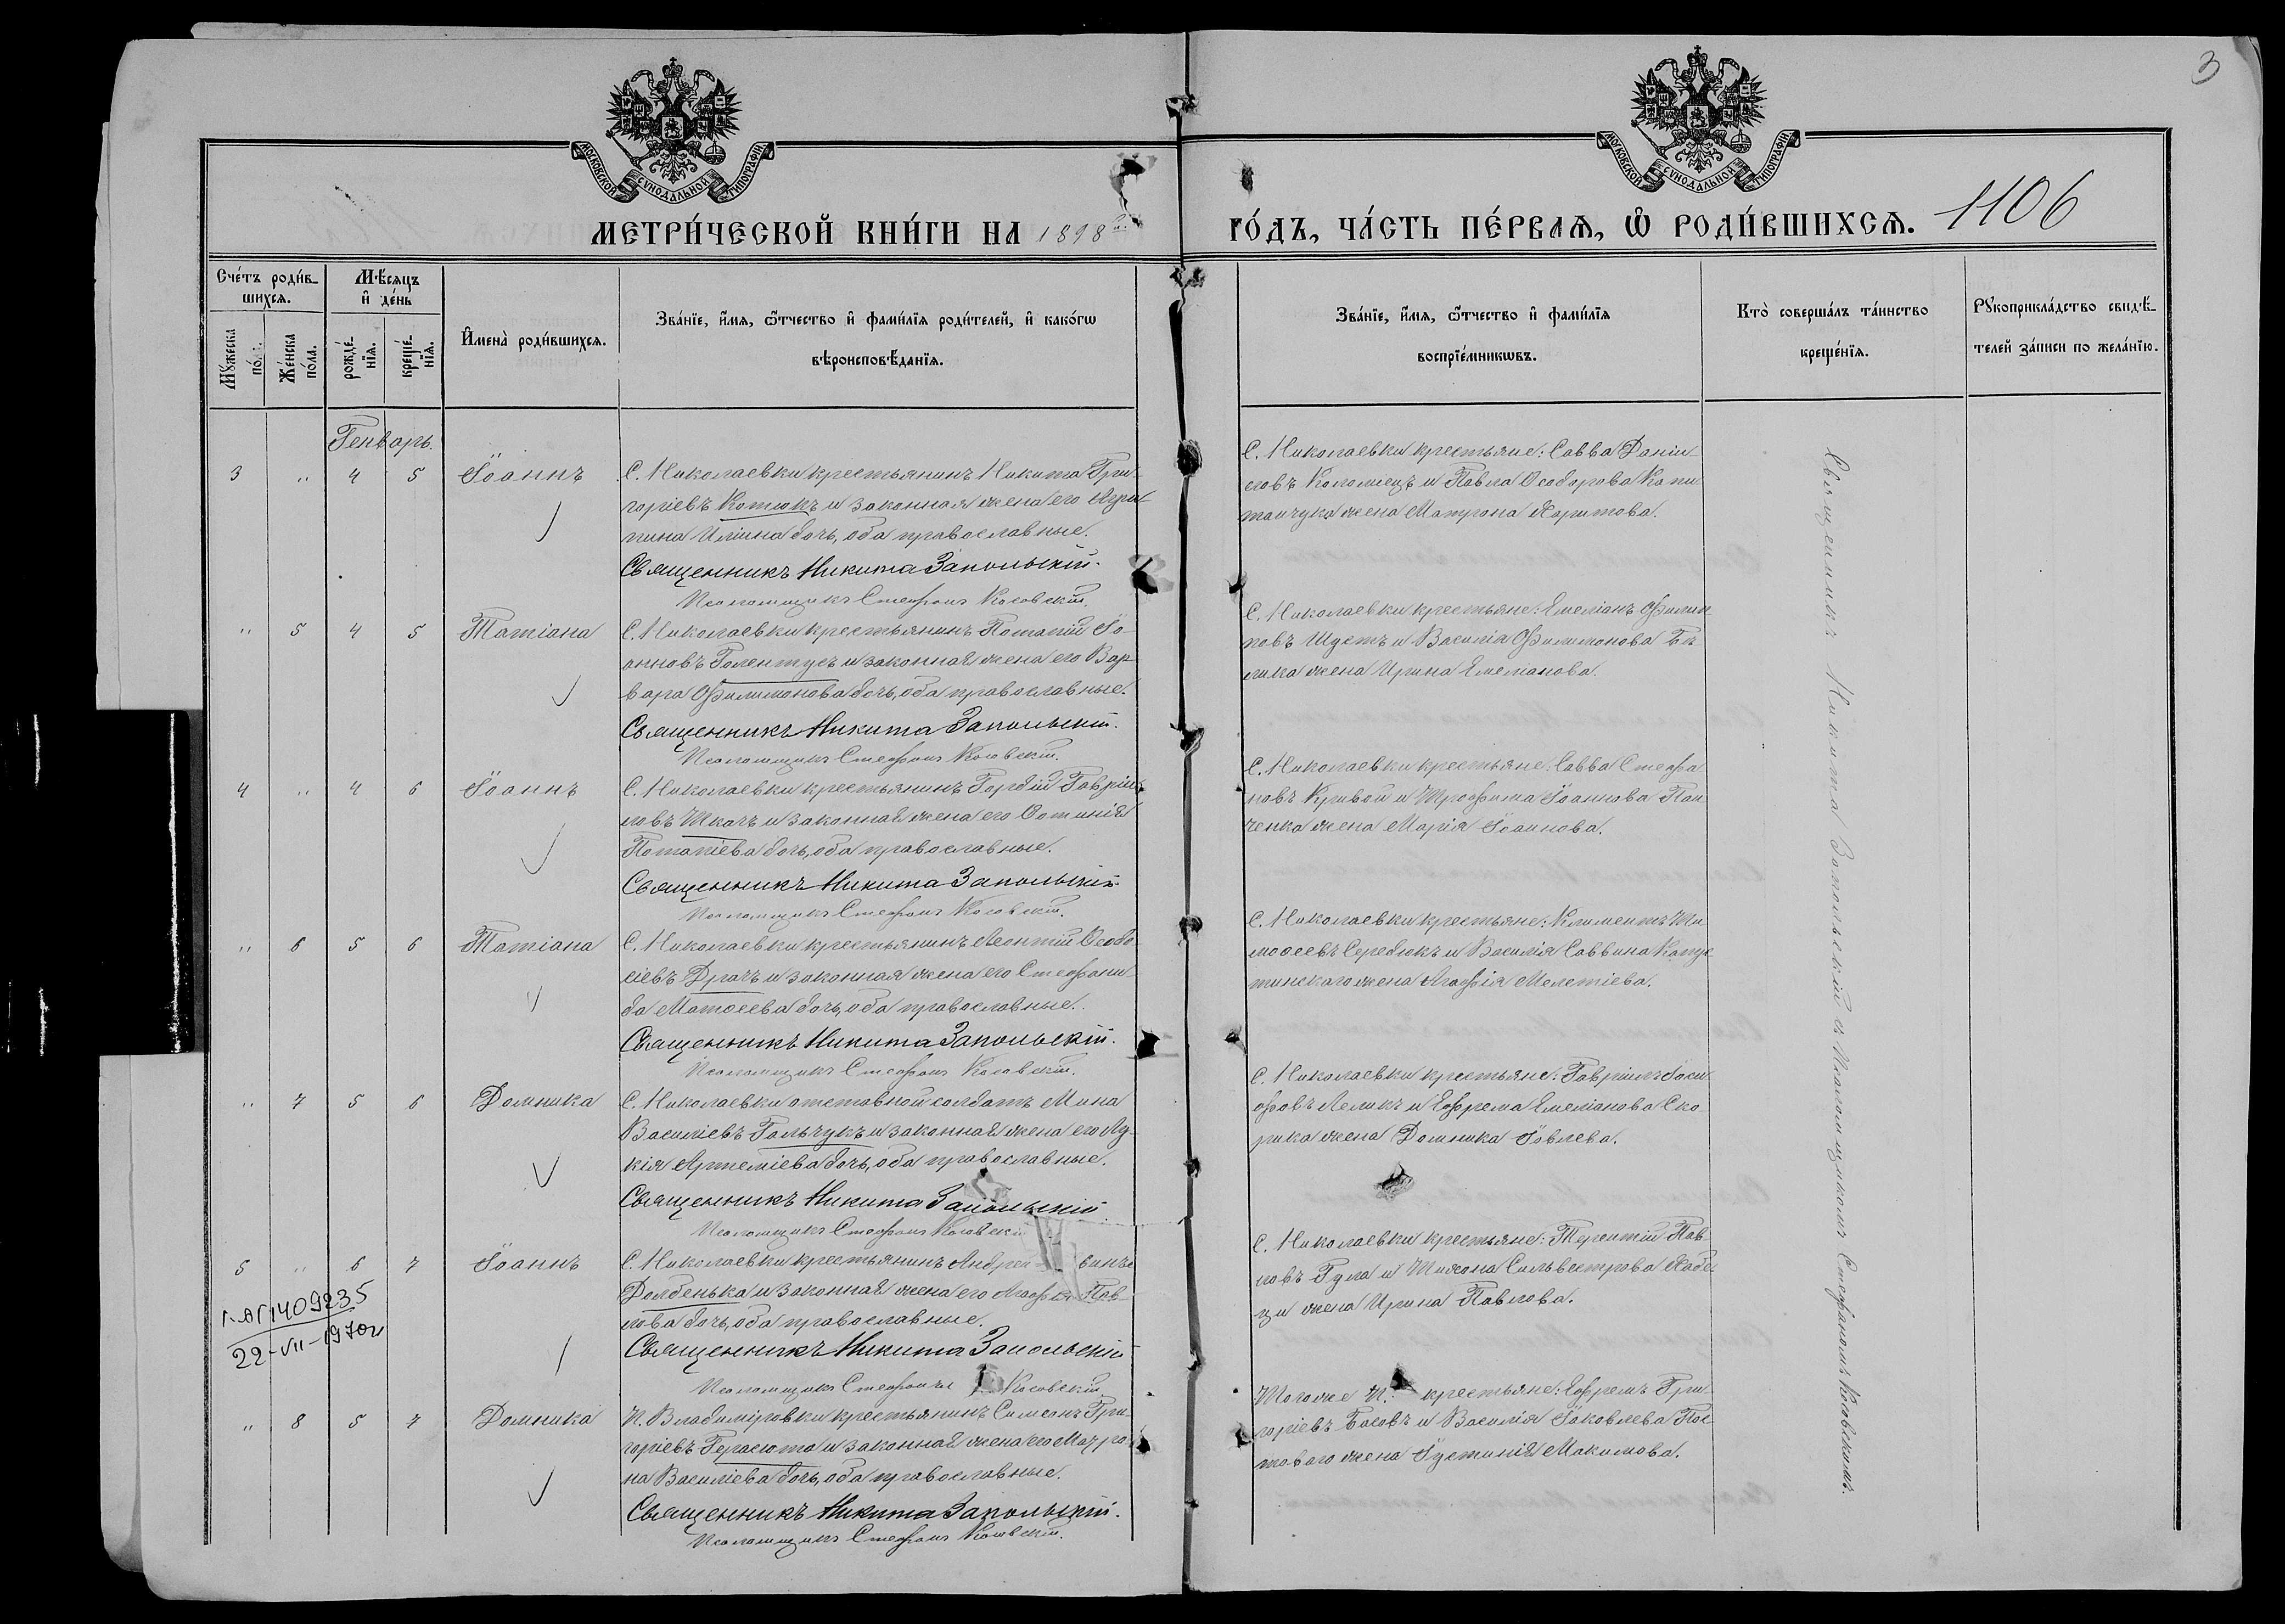 3
МОСКОВСКОЙ СѴНОДАЛЬНОЙ ТИПОГРАФІИ
МОСКОВСКОЙ СѴНОДАЛЬНОЙ ТИПОГРАФІИ
МЕТРИ́ЧЕСКОЙ КНИ́ГИ НА 1898 г.
ГО́ДЪ, ЧА́СТЬ ПЕ́РВАѦ, Ѡ РОДИ́ВШИХСѦ. 1106
Сче́тъ роди́в-
шихсѧ.
Мꙋ́жеска по́ла.
Же́нска по́ла.
Мѣ́сѧцъ
и҆ де́нь
рожде́-
нїѧ.
креще́-
нїѧ.
И҆мена̀ роди́вшихсѧ.
Зва́нїе, и҆́мѧ, ѻ҆́тчество и҆ фами́лїѧ роди́телей, и҆ како́гѡ
вѣроисповѣ́данїѧ.
Зва́нїе, и҆́мѧ, ѻ҆́тчество и҆ фами́лїѧ
воспрїе́мникѡвъ.
Кто̀ соверша́лъ та́инство
креще́нїѧ.
Рꙋкоприкла́дство свидѣ́-
телей за́писи по жела́нїю.
Генварь.
3 „ 4 5 Іоаннъ
С. Николаевки крестьянинъ Никита Гри-
горіевъ Котюкъ и законная жена его Агри-
пина Иліина дочь, оба православные.
Священникъ Никита Запольскій.
Псаломщикъ Стефанъ Косовскій.
С. Николаевки крестьяне: Савва Даніи-
ловъ Коломіецъ и Павла Ѳеодорова Капи-
танчука жена Матрона Харитова.
„ 5 4 5 Татіана
С. Николаевки крестьянинъ Потапій Іо-
анновъ Голентусъ и законная жена его Вар-
вара Филимонова дочь, оба православные.
Священникъ Никита Запольскій.
Псаломщикъ Стефанъ Косовскій.
С. Николаевки крестьяне: Емеліанъ Филип-
повъ Шустъ и Василія Филимонова Бѣ-
лика жена Ирина Емеліанова.
4 „ 4 6 Іоаннъ
С. Николаевки крестьянинъ Гордій Гавріи-
ловъ Ткачъ и законная жена его Фотинія
Потапіева дочь, оба православные.
Священникъ Никита Запольскій.
Псаломщикъ Стефанъ Косовскій.
С. Николаевки крестьяне: Савва Стефа-
новъ Кривой и Трофима Іоаннова Пан-
ченка жена Марія Іоаннова.
„ 6 5 6 Татіана
С. Николаевки крестьянинъ Леонтій Ѳеодо-
сіевъ Драчъ и законная жена его Стефани-
да Матѳеева дочь, оба православные.
Священникъ Никита Запольскій.
Псаломщикъ Стефанъ Косовскій.
С. Николаевки крестьяне: Климентъ Ти-
моѳеевъ Середюкъ и Василія Саввина Капус-
тинскаго жена Агафія Мелетіева.
„ 7 5 6 Домника
С. Николаевки отставной солдатъ Мина
Василіевъ Гальчукъ и законная жена его Лу-
кія Артеміева дочь, оба православные.
Священникъ Никита Запольскій
Псаломщикъ Стефанъ Косовскій
С. Николаевки крестьяне: Гавріилъ Іоси-
фовъ Леликъ и Ефрема Емеліанова Ско-
рика жена Домника Іовлева.
5 „ 6 7 Іоаннъ
С. Николаевки крестьянинъ Андрей винъ
Долбенька и законная жена его Агафія Пав-
лова дочь, оба православные.
Священникъ Никита Запольскій
Псаломщикъ Стефанъ Косовскій.
С. Николаевки крестьяне: Терентій Пав-
ловъ Гула и Тихона Сильвестрова
жена Ирина Павлова.
1409235
22-VII-1970г
„ 8 5 7 Домника
И. Владиміровки крестьянинъ Симеонъ Гри-
горіевъ Герасюта и законная жена его Матро-
на Василіева дочь, оба православные.
Священникъ Никита Запольскій.
Псаломщикъ Стефанъ Косовскій.
Тогоже И. крестьяне: Ефремъ Гри-
горіевъ Басовъ и Василія Іаковлева Пос-
товаго жена Іустинія Макимова.
Священникъ Никита Запольскій съ Псаломщикомъ Стефаномъ Косовскимъ.